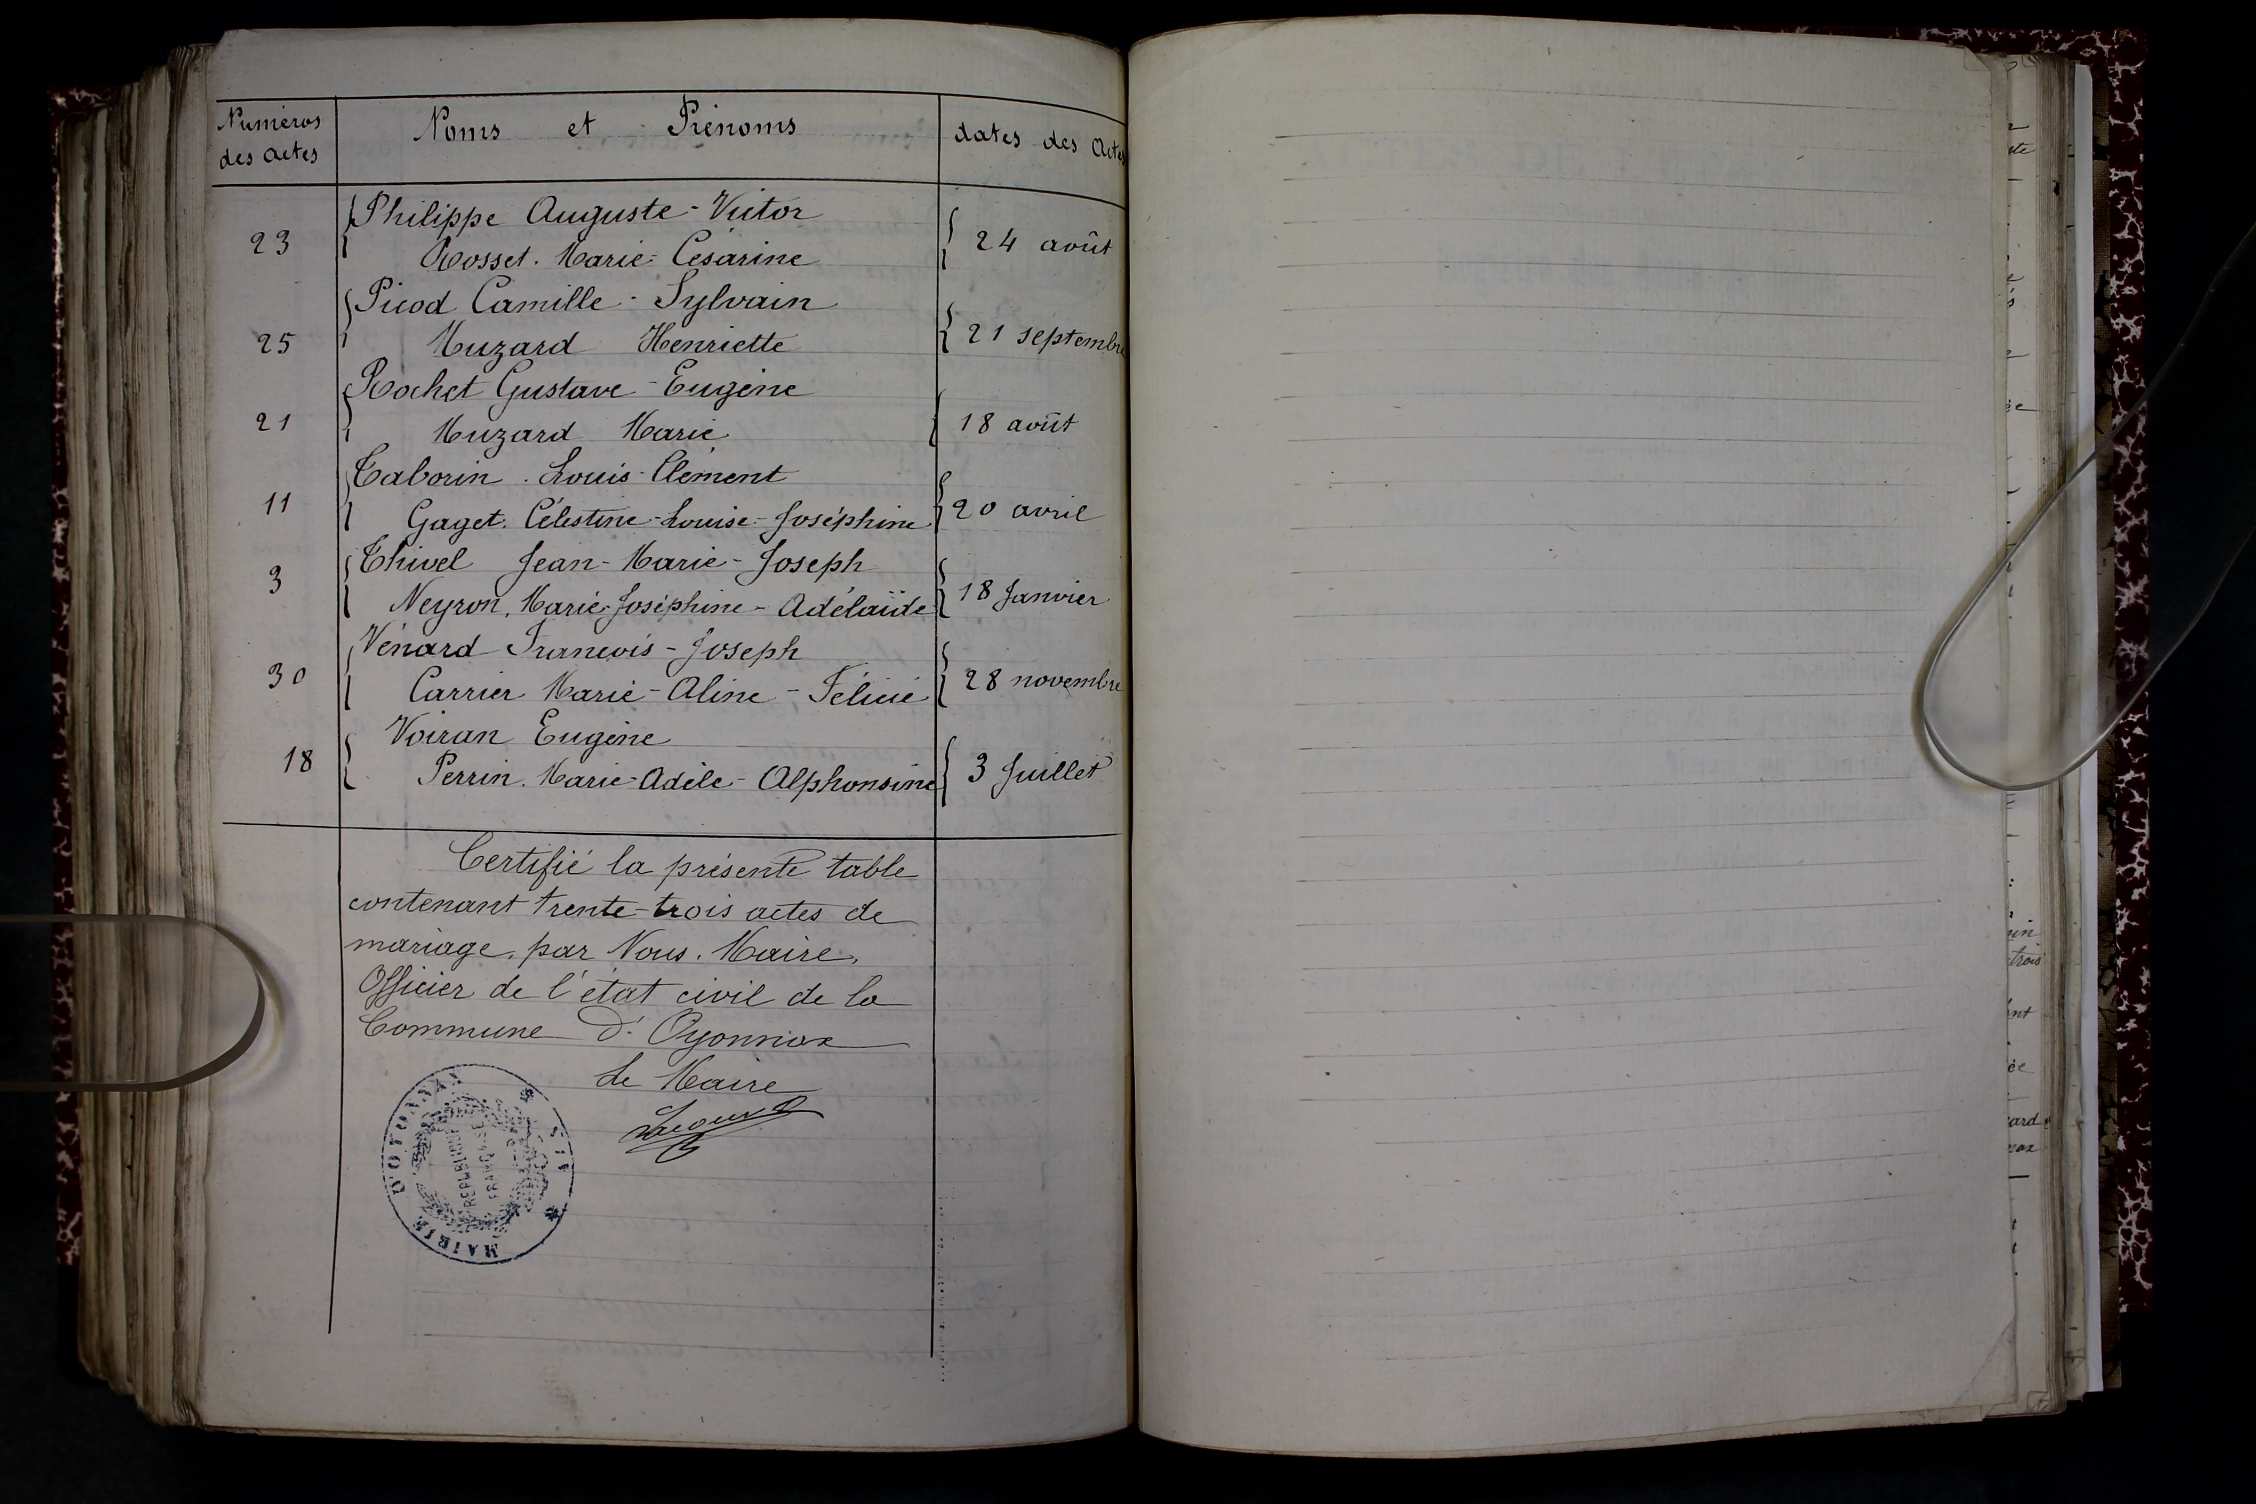 Numéros des actes
Noms et Prénoms
dates des Actes
Philippe Auguste-Victor
23
Rosset. Marie-Césarine
24 août
Picod Camille-Sylvain
25
Muzard Henriette
21 septembre
Rochet Gustave-Eugène
21
Muzard Marie
18 août
Taborin. Louis-Clément
11
Gaget. Célestine-Louise-Joséphine
20 avril
Thivel Jean-Marie-Joseph
3
Neyron. Marie-Joséphine-Adélaïde
18 Janvier
Vénard François-Joseph
30
Carrier Marie-Aline-Félicie
28 novembre
Voiran Eugène
18
Perrin. Marie-Adèle-Alphonsine
3 Juillet
Certifié la présente table
contenant trente-trois actes de
mariage, par Nous. Maire,
Officier de l'état civil de la
Commune d'Oyonnax
Le Maire
MAIRIE D'OYONNAX
REPUBLIQUE
FRANÇAISE
AIN